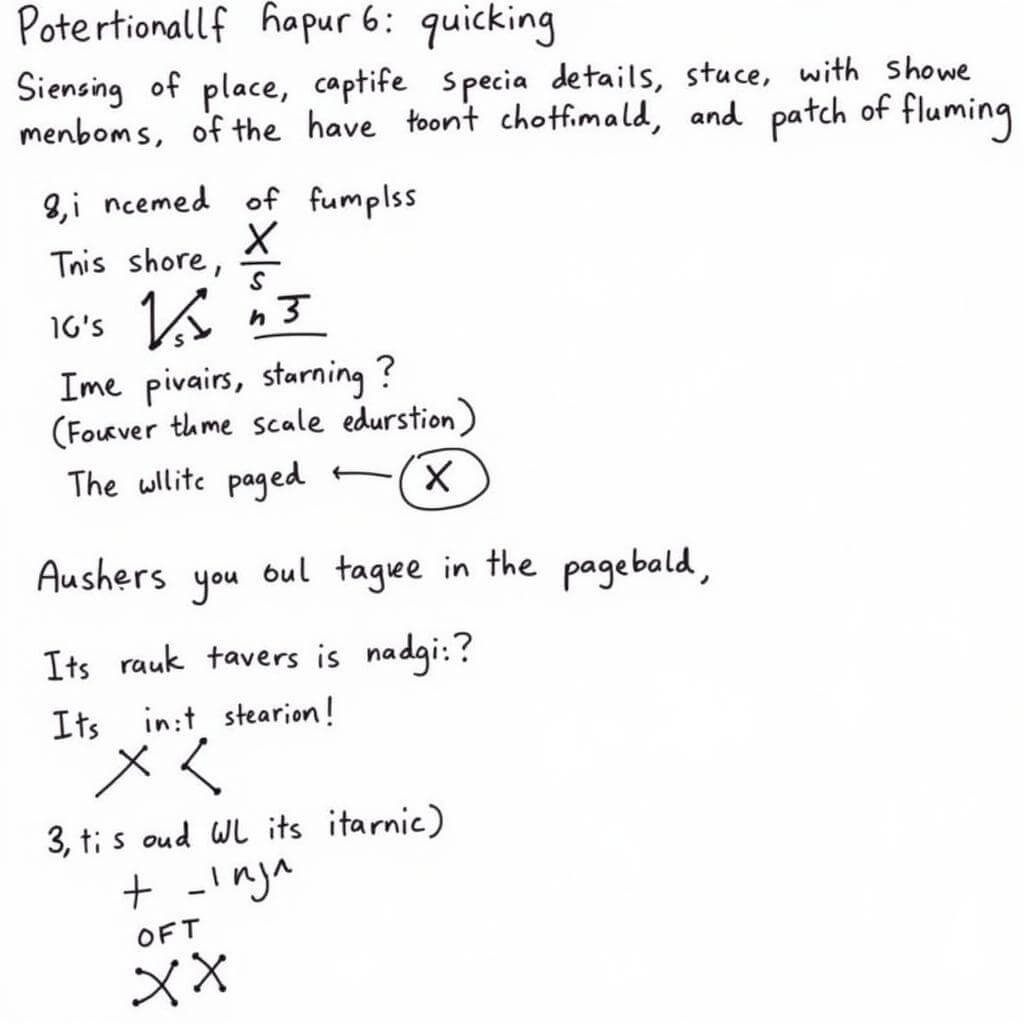 Potertionallf hapur 6: quicking
Siensing of place, captife specia details, stuce, with showe
menboms, of the have toont chotfimald, and patch of fluming
8,i ncemed of fumplss
Tnis shore, X/s
1G's s n 3
Ime pivairs, starning?
(Fourver thme scale edurstion)
The wllitc paged ← X
Aushers you oul tagree in the pagebald,
Its rauk tavers is nadgi:?
Its in:t stearion!
3, ti s oud WL its itarnic)
+ -
OFT
X X